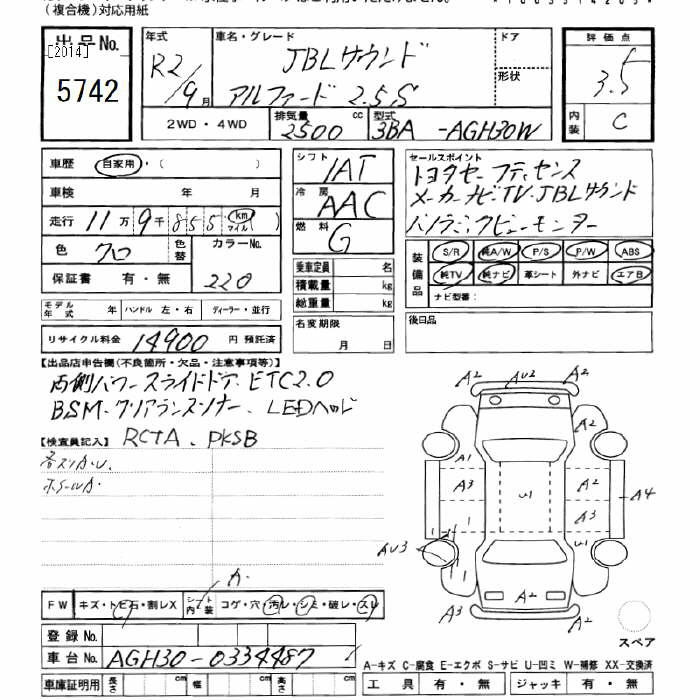 (複合機)対応用紙
出品No.
[2014]
5742
年式
R2/9月
車名・グレード
JBLサウンド
アルファード 2.5S
ドア
形状
評価点
3.5
内装
C
2WD・4WD
排気量
2500 cc
型式
3BA-AGH30W
車歴
自家用・( )
車検 年 月
走行 11万9千855 km マイル ( )
色 クロ
色替
カラーNo.
220
保証書 有・無
モデル年式 年 ハンドル 左・右 ディーラー・並行
リサイクル料金 14900 円 預託済
シフト
IAT
冷房
AAC
燃料
G
乗車定員 名
積載量 kg
総重量 kg
名変期限
月 日
セールスポイント
トヨタセーフティセンス
メーカーナビTV.JBLサウンド
パノラミックビューモニター
装備品
S/R 純A/W P/S P/W ABS
純TV 純ナビ 革シート 外ナビ エアB
ナビ型番:
後日品
【出品店申告欄(不良箇所・欠品・注意事項等)】
両側パワースライドドア.ETC2.0
BSM.クリアランスソナー.LEDヘッド
【検査員記入】 RCTA.PKSB
各スリA.U.
ホイールA.
A.
A2
AU2
A2
A2
A1
A3
A2
A3
A4
U1
U1
AU3
A3
A2
A2
スペア
FW キズ・トビ石・割レX
シート内装 コゲ・穴・汚レ・シミ・破レ・スレ
登録No.
車台No. AGH30-0334487
車庫証明用 長さ 幅 高さ
A-キズ C-腐食 E-エクボ S-サビ U-凹ミ W-補修 XX-交換済
工具 有・無 ジャッキ 有・無